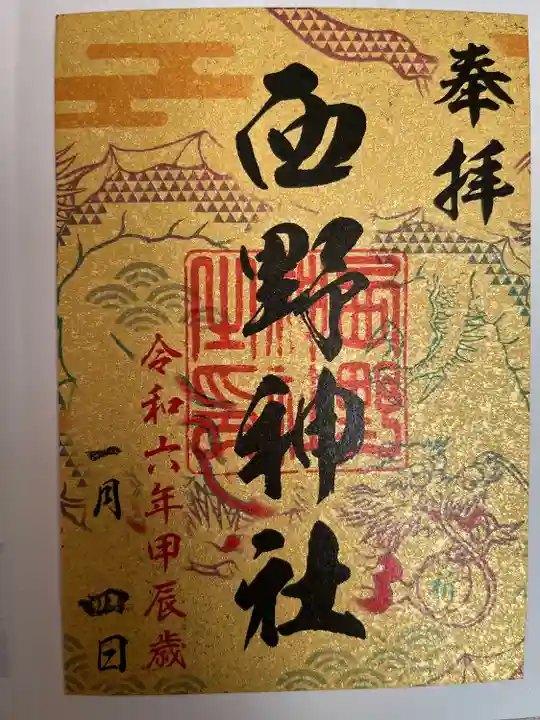 奉拝
西野神社
西野神社之印
令和六年甲辰歳
一月四日